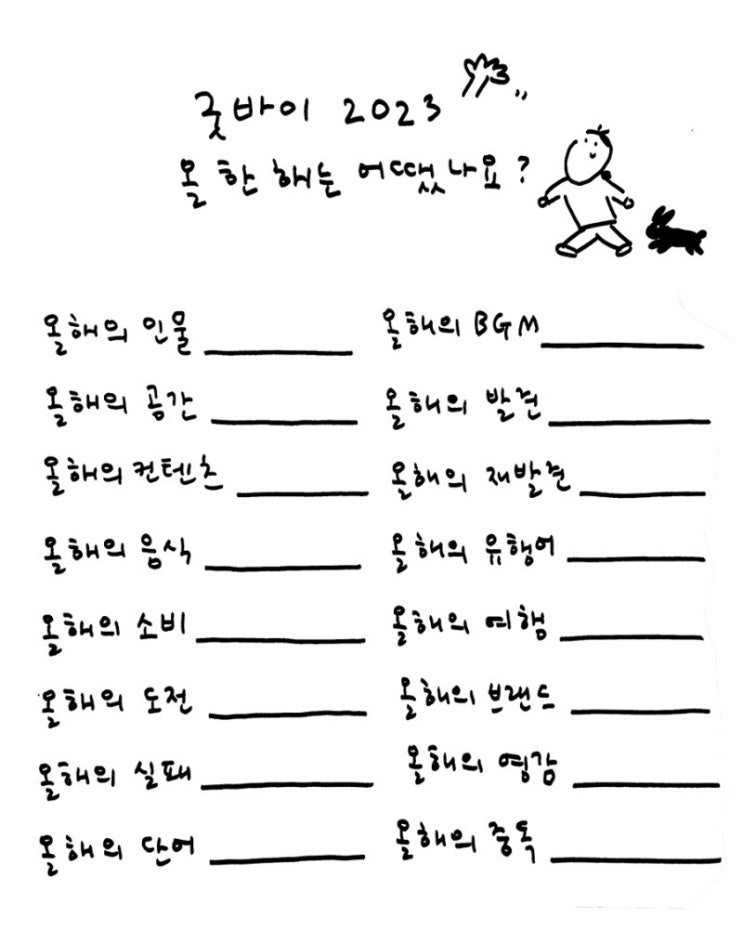 굿바이 2023
올 한 해는 어땠나요?
올해의 인물
올해의 BGM
올해의 공간
올해의 발견
올해의 컨텐츠
올해의 재발견
올해의 음식
올해의 유행어
올해의 소비
올해의 여행
올해의 도전
올해의 브랜드
올해의 실패
올해의 영감
올해의 단어
올해의 중독